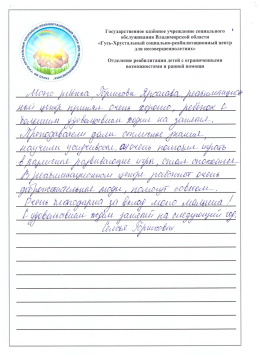 Государственное казённое учреждение социального
обслуживания Владимирской области
«Гусь-Хрустальный социально-реабилитационный центр
для несовершеннолетних»
Отделение реабилитации детей с ограниченными
возможностями и ранней помощи
Моего ребёнка Ярослава реабилитацион
ный центр принял очень хорошо, ребёнок с
большим удовольствием ходил на занятия.
Преподаватели дали отличные знания,
научили усидчивости, очень помогли играть
в развивающие игры, стал спокойнее.
В реабилитационном центре работают очень
доброжелательные люди, помогут советом.
Очень благодарна за вклад моего малыша!
С удовольствием ждём занятий на следующий год.
Семья